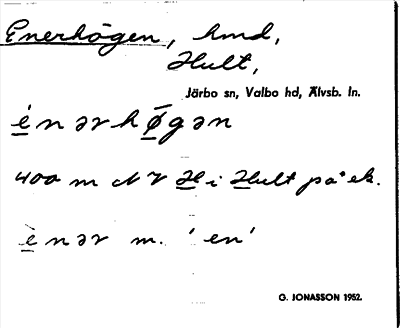 Enerhögen, hmd,
Hult,
Järbo sn, Valbo hd, Älvsb. ln.
énərhø̀gən
400 m NV H i Hult på ek.
ènər m. 'en'
G. JONASSON 1952.